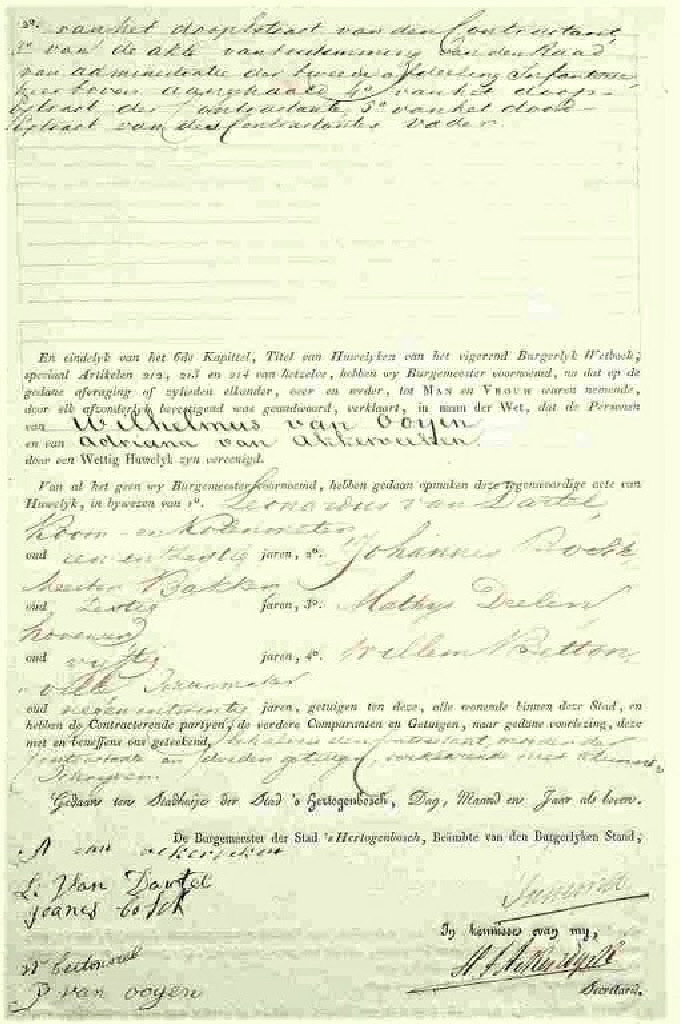 2o. van het doopextract van den Contractant,
3o van de akte van toestemming van den Raad
van administratie der tweede afdeeling Infanterie
hierboven aangehaald 4o van het doop-
extract der Contractante, 5o van het doop-
extract van des Contractantes vader.
En eindelyk van het 6de Kapittel, Titel van Huwelyken van het vigerend Burgerlyk Wetboek,
speciaal Artikelen 212, 213 en 214 van hetzelve, hebben wy Burgemeester voornoemd, na dat op de
gedane afvraging of zylieden elkander, over en weder, tot MAN en VROUW waren nemende,
door elk afzonderlyk bevestigend was geandwoord, verklaart, in naam der Wet, dat de Persoon
van Wilhelmus van Ooyen
en van Adriana van Akkerveeken
door een Wettig Huwelyk zyn vereenigd.
Van al het geen wy Burgemeester voornoemd, hebben gedaan opmaken deze tegenwoordige acte van
Huwelyk, in bywezen van 1o. Leonardus van Dartel
Koorn- en Kolenmeter
oud een en zestig jaren, 2o. Johannes Bosch
Meester Bakker
oud zestig jaren, 3o. Mathys Deelen
hovenier
oud vyftig jaren, 4o. Willem Betton-
ville
oud negenentwintig jaren, getuigen ten deze, alle wonende binnen deze Stad, en
hebben de Contracterende partyen, de verdere Comparanten en Getuigen, naar gedane voorlezing, deze
met en benevens ons geteekend, behalven den Contractant, moeder der
Contractante en derden getuige, verklarende niet te kunnen
Schryven.
Gedaan ten Stadhuize der Stad 's Hertogenbosch, Dag, Maand en Jaar als boven.
De Burgemeester der Stad 's Hertogenbosch, Beämbte van den Burgerlyken Stand,
A van akerveken
L: Van Dartel
joanes bosch
In kennisse van my,
W bettonvile
P van ooyen
Secretaris.